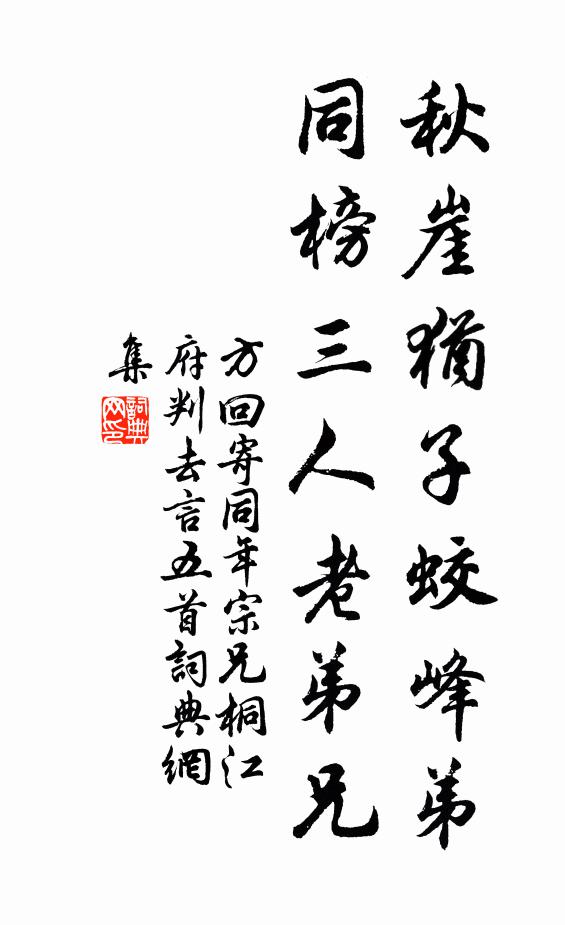 秋崖猶子蛟峰弟
同榜三人老弟兄
方回寄同年宗兄桐江
府判去言五首詞典網
集
詞典
网印